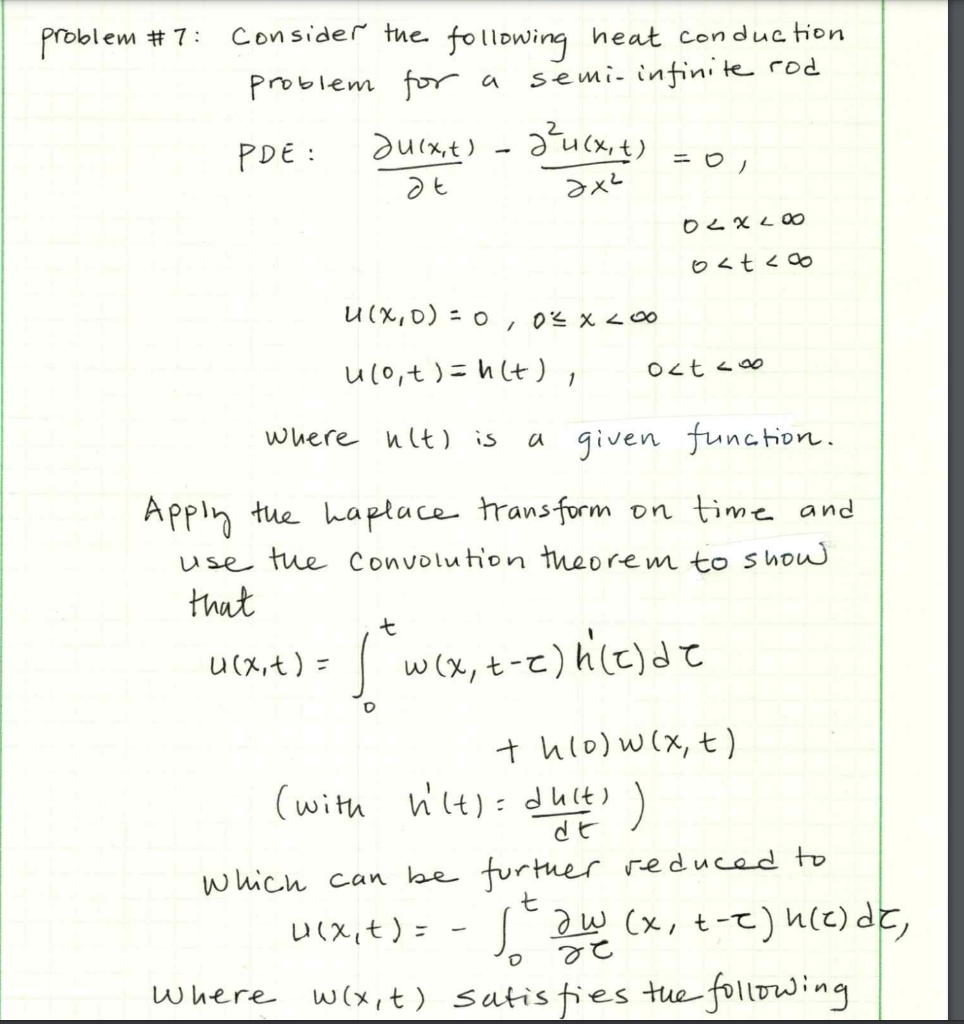 problem #7: Consider the following heat conduction
problem for a semi-infinite rod
PDE: ∂u(x,t)/∂t - ∂²u(x,t)/∂x² = 0,
0<x<∞
0<t<∞
u(x,0) = 0, 0≤x<∞
u(0,t) = h(t), 0<t<∞
where h(t) is a given function.
Apply the Laplace transform on time and
use the convolution theorem to show
that
u(x,t) = ∫₀ᵗ w(x,t-τ) h'(τ)dτ
+ h(0)w(x,t)
(with h'(t) = dh(t)/dt)
which can be further reduced to
u(x,t) = - ∫₀ᵗ ∂w/∂τ (x, t-τ) h(τ)dτ,
where w(x,t) satisfies the following